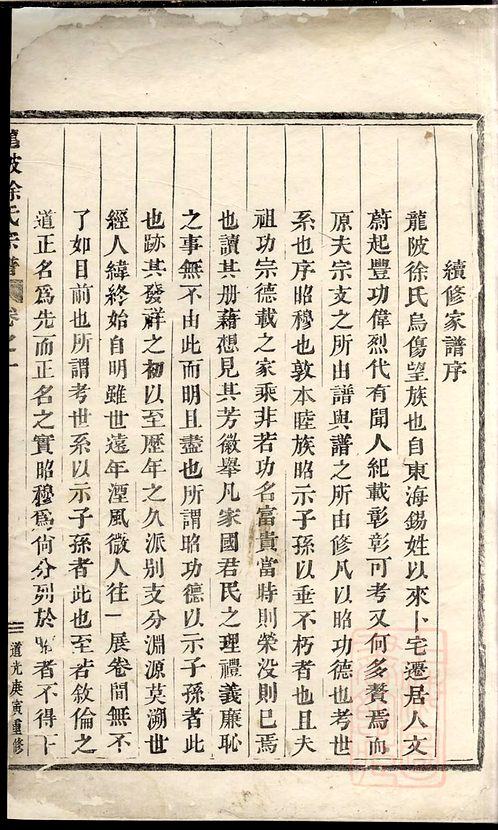 續修家譜序
龍陂徐氏烏傷望族也自東海錫姓以來卜宅遷居人文
蔚起豐功偉烈代有聞人紀載彰彰可考又何多贅焉而
原夫宗支之所由譜與譜之所由修凡以昭功德也考世
系也序昭穆也敦本睦族昭示子孫以垂不朽者也且夫
祖功宗德載之家乘非若功名富貴當時則榮沒則已焉
也讀其册藉想見其芳徽舉凡家國君民之理禮義廉恥
之事無不由此而明且盡也所謂昭功德以示子孫者此
也跡其發祥之初以至歷年之久派别支分淵源莫溯世
經人緯終始自明雖世遠年湮風微人往一展卷間無不
了如目前也所謂考世系以示子孫者此也至若敘倫之
道正名爲先而正名之實昭穆爲尚分列於昭者不得
陂徐氏宗譜 卷之一
道光庚寅重修